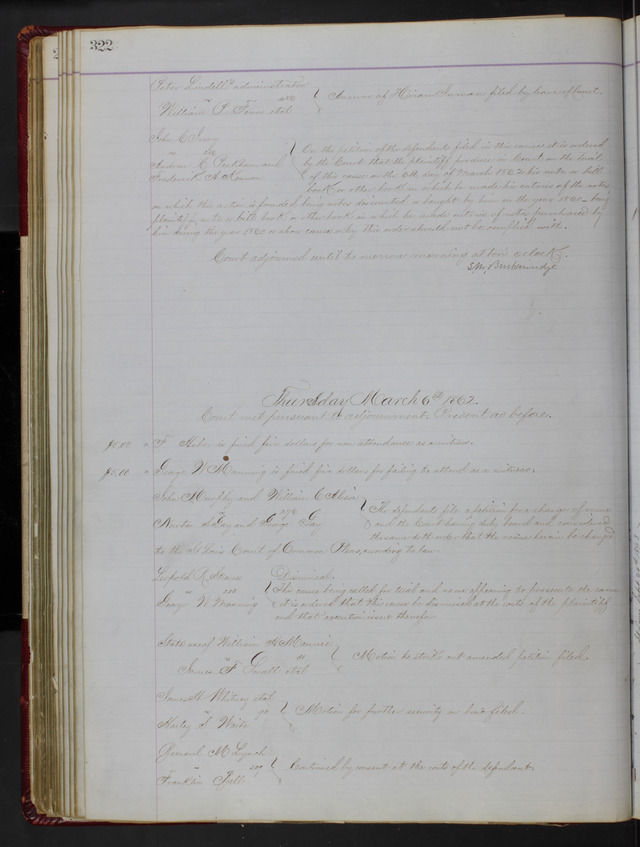 322
Peter Lindell's administrator
William P. et al
Answer of Hiram filed by leave of Court.
John C
vs
Andrew R. and
Frederick A.
On the petition of the defendants filed in this cause it is ordered
by the Court that the plaintiff produce in Court on the trial
of this cause on the 6th day of March 1862 his note or bill
book or other book in which he made his entries of the notes
on which this action is founded being notes discounted or bought by him in the year 1860 being
plaintiff's note or bill book or other book in which he made entries of notes purchased by
him during the year 1860 or show cause why this order should not be complied with.
Court adjourned until to morrow morning at ten o'clock.
S.M. Breckinridge
Thursday March 6th 1862.
Court met pursuant to adjournment. Present as before.
$5.00 F is fined five dollars for non attendance as a witness.
$5.00 George W Manning is fined five dollars for failing to attend as a witness.
John Murphy and William C
vs 270
Gay and George Gay
The defendants file a petition for a change of venue
and the Court having duly heard and considered
the same doth order that the venue herein be changed
to the St Louis Court of Common Pleas, according to law.
Leopold
vs
George W Manning
Dismissal.
This cause being called for trial and no one appearing to prosecute the same
it is ordered that this cause be dismissed at the costs of the plaintiff
and that execution issue therefor
State use of William
vs 91
James F Small et al
Motion to strike out amended petition filed.
James W Whitney et al
vs
Harley S Waite
Motion for further security on bond filed.
M Lynch
vs
Franklin Bell
Continued by consent at the costs of the defendant.